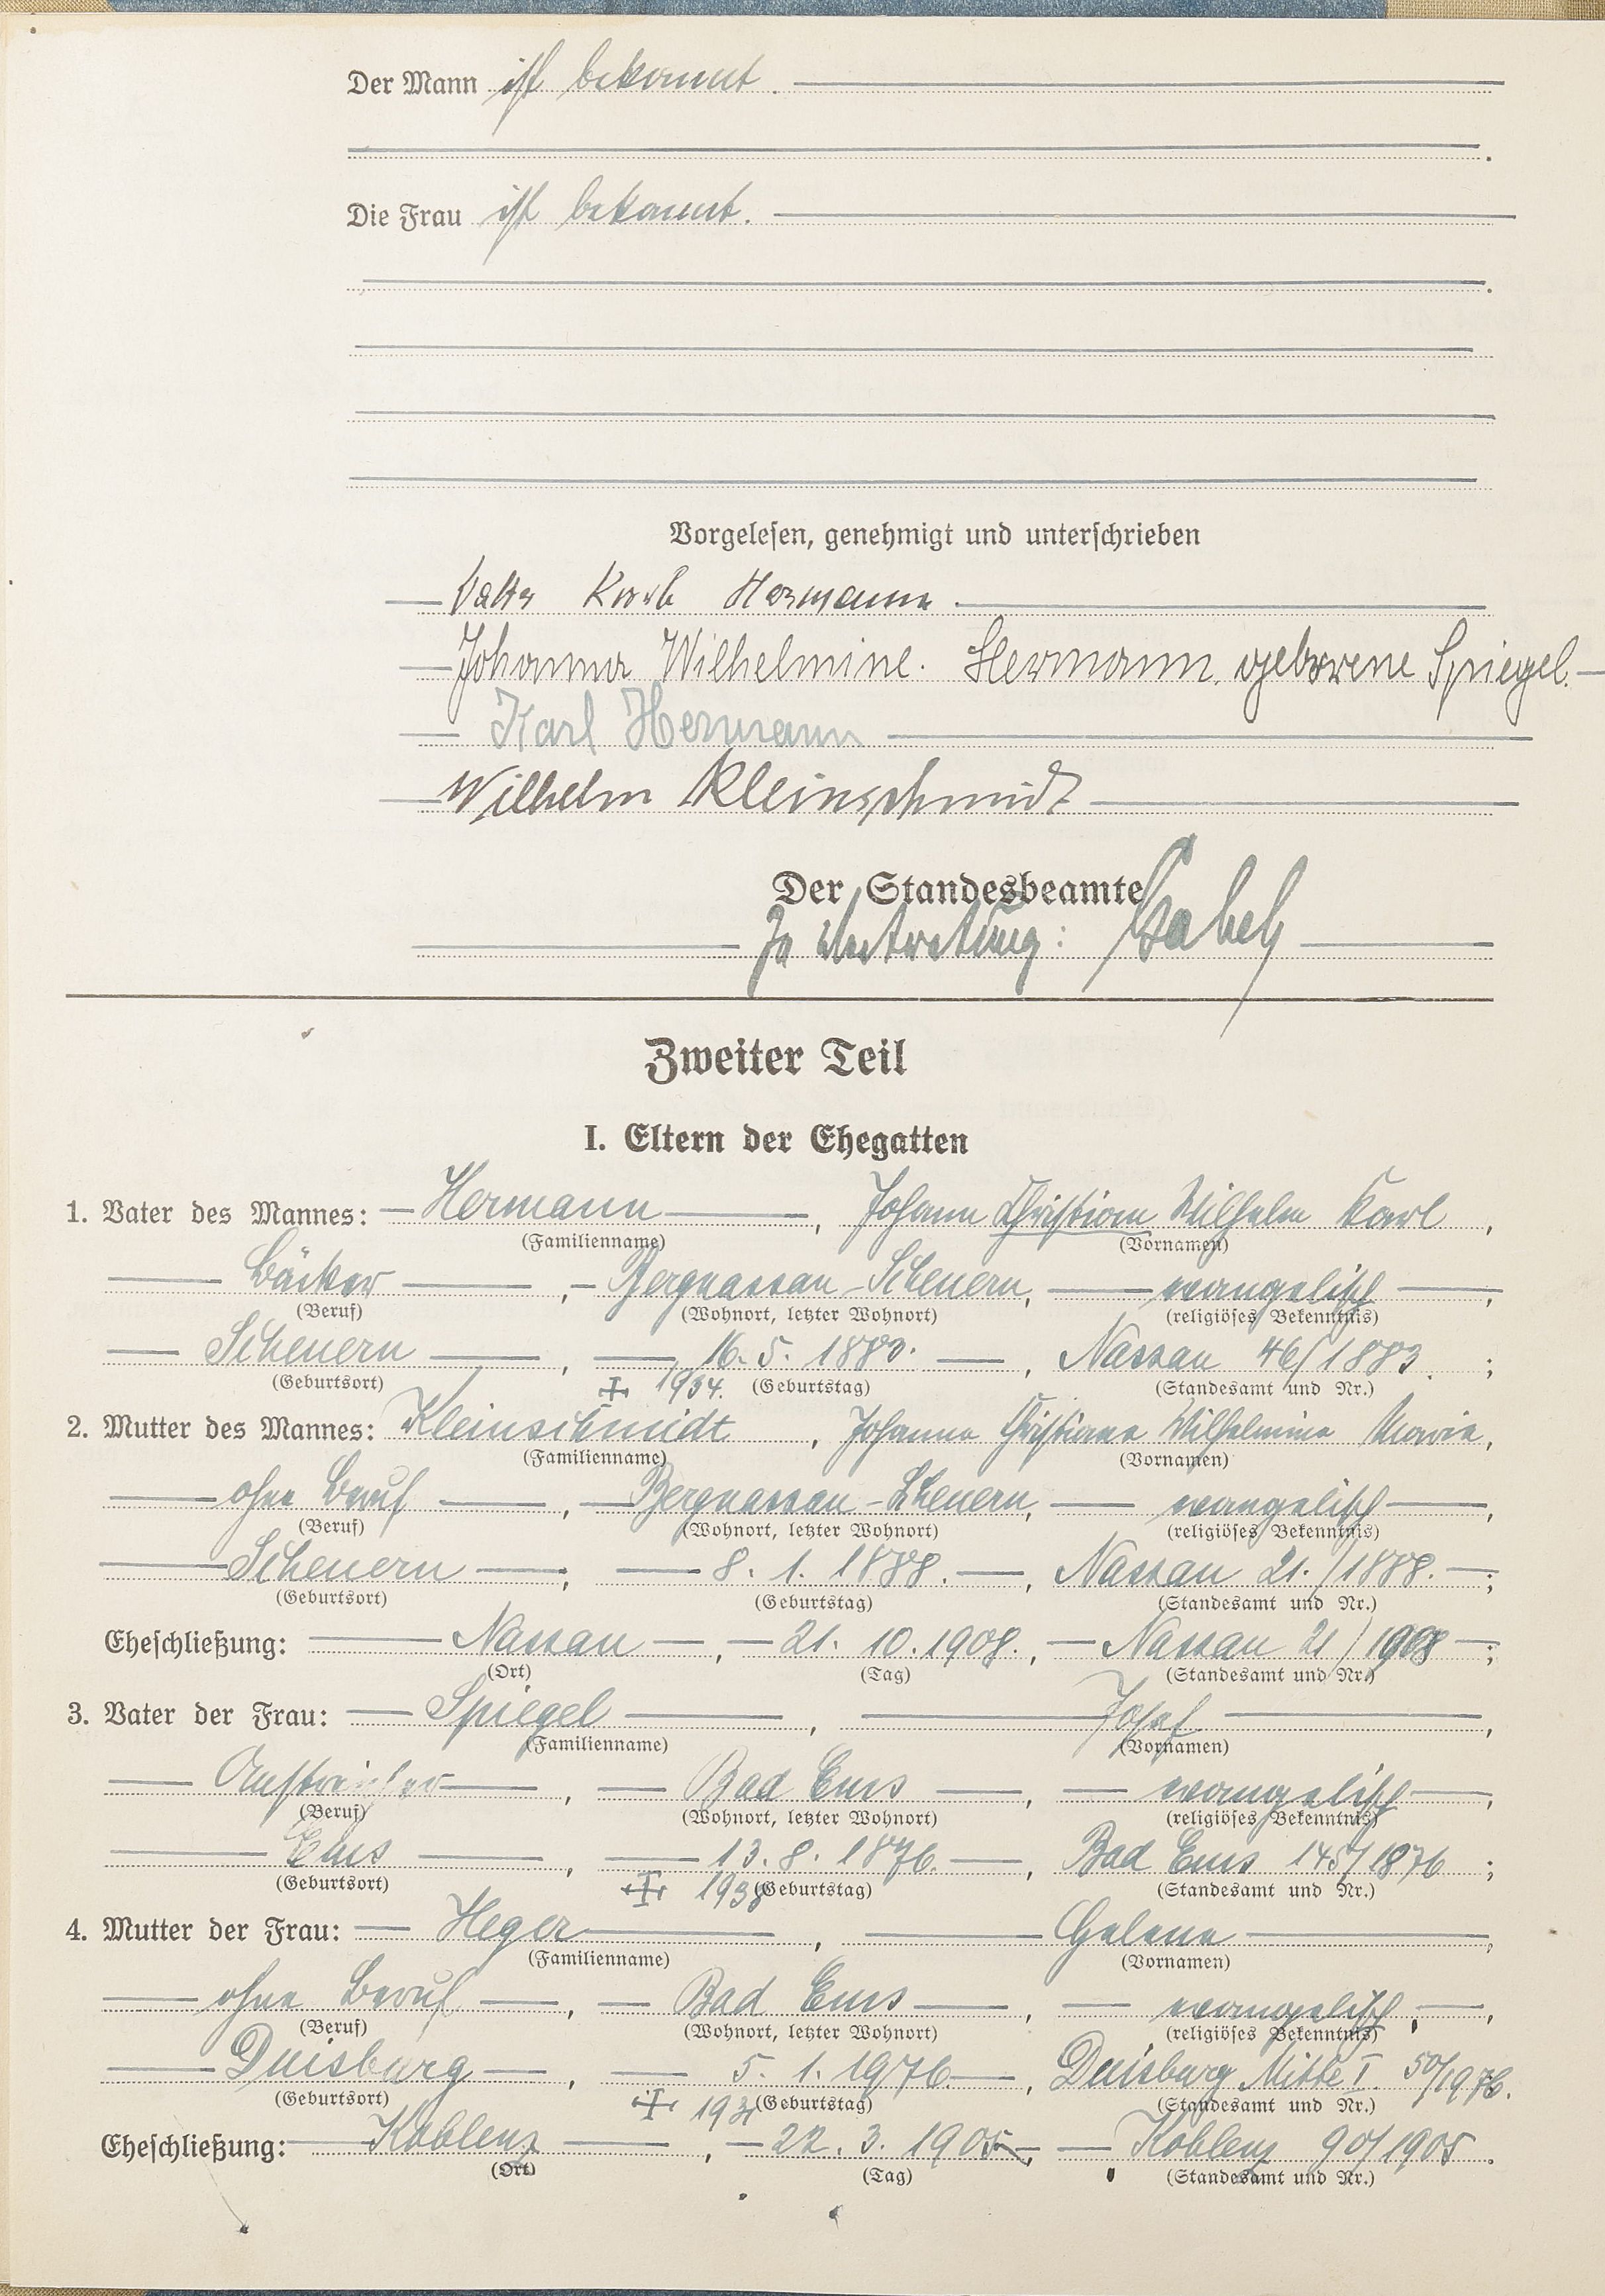 Der Mann ist bekannt.
Die Frau ist bekannt.
Vorgelesen, genehmigt und unterschrieben
Hermann
Johanna Wilhelmine Hermann geborene Spiegel.
Karl Hermann
Wilhelm Kleinschmidt
Der Standesbeamte
In Vertretung:
Zweiter Teil
I. Eltern der Ehegatten
1. Vater des Mannes: Hermann, Johann Christian Wilhelm Karl,
(Familienname) (Vornamen)
Bäcker, Bergnassau-Scheuern, evangelisch,
(Beruf) (Wohnort, letzter Wohnort) (religiöses Bekenntnis)
Scheuern, 16. 5. 1883., Nassau 46/1883.;
(Geburtsort) ✝ 1934. (Geburtstag) (Standesamt und Nr.)
2. Mutter des Mannes: Kleinschmidt, Johanna Christiane Wilhelmine Marie,
(Familienname) (Vornamen)
ohne Beruf, Bergnassau-Scheuern, evangelisch,
(Beruf) (Wohnort, letzter Wohnort) (religiöses Bekenntnis)
Scheuern, 8. 1. 1888., Nassau 21./1888.;
(Geburtsort) (Geburtstag) (Standesamt und Nr.)
Eheschließung: Nassau, 21. 10. 1908., Nassau 21/1908;
(Ort) (Tag) (Standesamt und Nr.)
3. Vater der Frau: Spiegel, Josef,
(Familienname) (Vornamen)
Anstreicher, Bad Ems, evangelisch,
(Beruf) (Wohnort, letzter Wohnort) (religiöses Bekenntnis)
Ems, 13. 8. 1876., Bad Ems 145/1876;
(Geburtsort) ✝ 1938 (Geburtstag) (Standesamt und Nr.)
4. Mutter der Frau: Heger, Helene,
(Familienname) (Vornamen)
ohne Beruf, Bad Ems, evangelisch,
(Beruf) (Wohnort, letzter Wohnort) (religiöses Bekenntnis)
Duisburg, 5. 1. 1976., Duisburg Mitte I. 50/1976.
(Geburtsort) ✝ (Geburtstag) (Standesamt und Nr.)
Eheschließung: Koblenz, 22. 3. 1905, Koblenz 90/1905.
(Ort) (Tag) (Standesamt und Nr.)